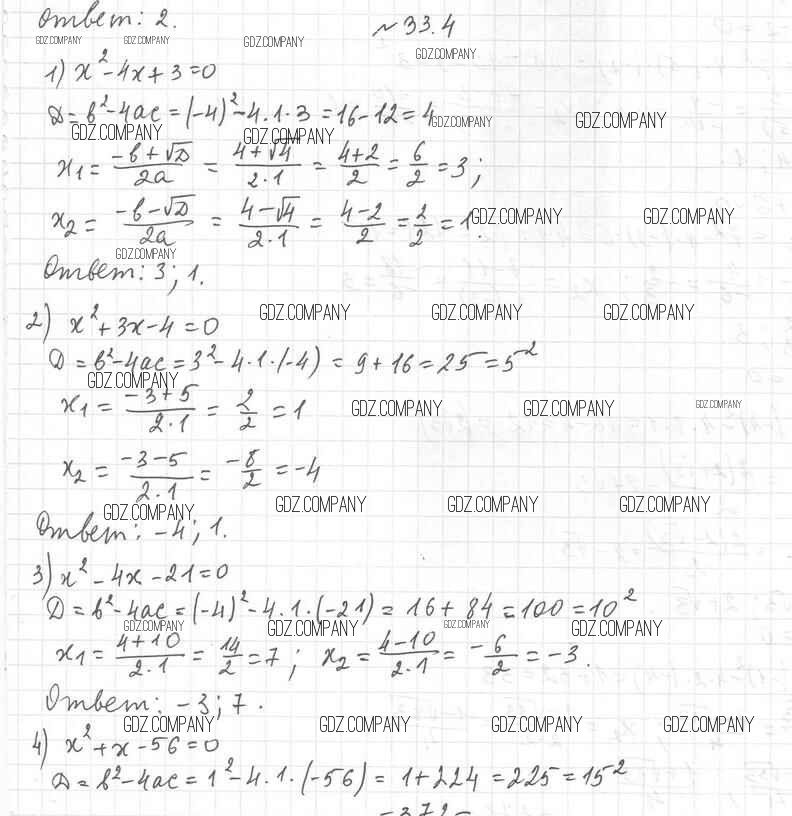 Ответ: 2.
№33.4
GDZ.COMPANY GDZ.COMPANY GDZ.COMPANY GDZ.COMPANY
1) x² - 4x + 3 = 0
D = b² - 4ac = (-4)² - 4·1·3 = 16 - 12 = 4
GDZ.COMPANY GDZ.COMPANY GDZ.COMPANY GDZ.COMPANY
x₁ = (-b + √D)/2a = (4 + √4)/(2·1) = (4+2)/2 = 6/2 = 3;
x₂ = (-b - √D)/2a = (4 - √4)/(2·1) = (4-2)/2 = 2/2 = 1.
GDZ.COMPANY GDZ.COMPANY
GDZ.COMPANY
Ответ: 3; 1.
GDZ.COMPANY GDZ.COMPANY GDZ.COMPANY
2) x² + 3x - 4 = 0
D = b² - 4ac = 3² - 4·1·(-4) = 9 + 16 = 25 = 5²
GDZ.COMPANY
x₁ = (-3+5)/(2·1) = 2/2 = 1
GDZ.COMPANY GDZ.COMPANY GDZ.COMPANY
x₂ = (-3-5)/(2·1) = -8/2 = -4
GDZ.COMPANY GDZ.COMPANY GDZ.COMPANY GDZ.COMPANY
Ответ: -4; 1.
3) x² - 4x - 21 = 0
D = b² - 4ac = (-4)² - 4·1·(-21) = 16 + 84 = 100 = 10²
GDZ.COMPANY GDZ.COMPANY GDZ.COMPANY GDZ.COMPANY
x₁ = (4+10)/(2·1) = 14/2 = 7; x₂ = (4-10)/(2·1) = -6/2 = -3.
Ответ: -3; 7.
GDZ.COMPANY GDZ.COMPANY GDZ.COMPANY GDZ.COMPANY
4) x² + x - 56 = 0
D = b² - 4ac = 1² - 4·1·(-56) = 1 + 224 = 225 = 15²